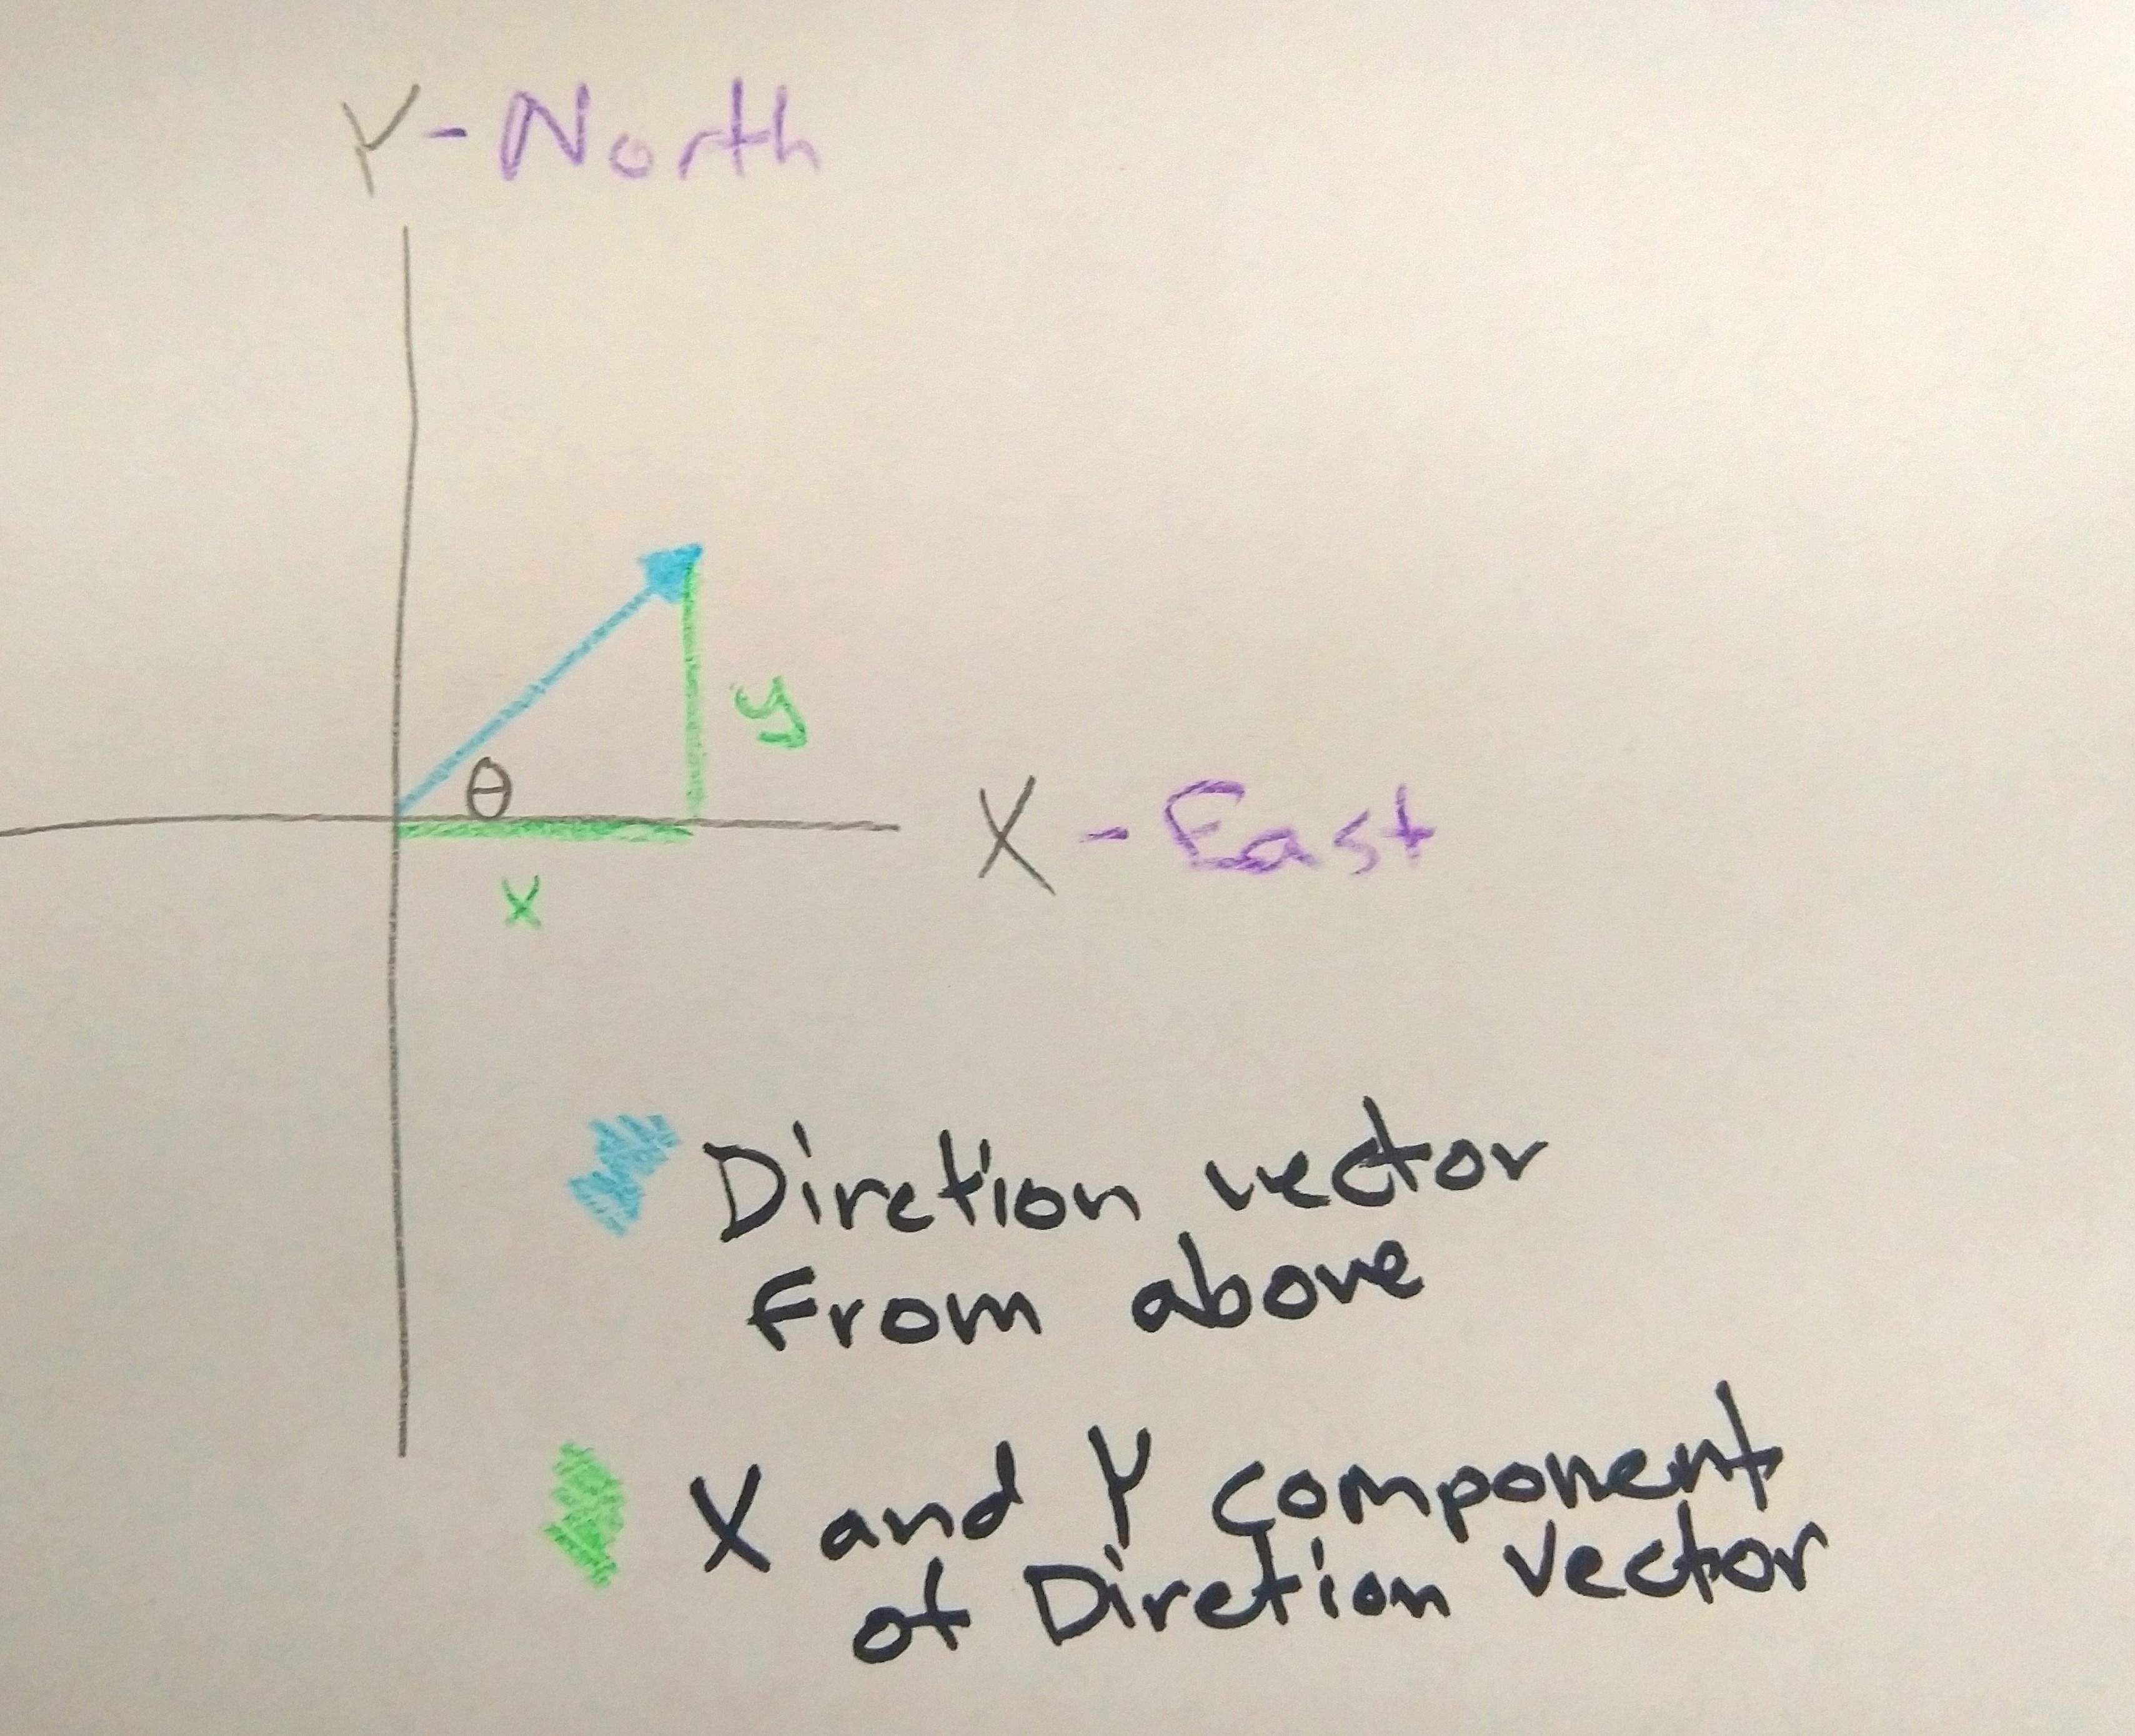 Y-North
y
θ
X-East
x
Diretion vector
from above
X and Y component
of Diretion Vector